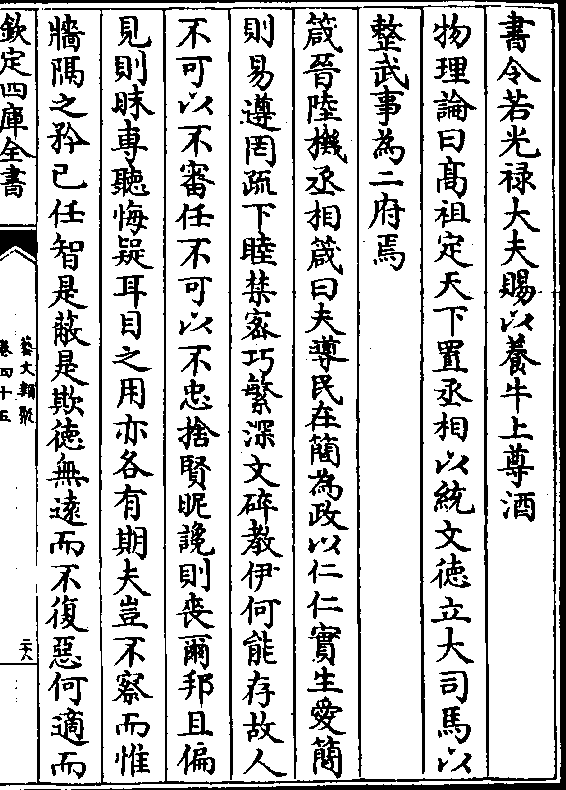 書令若光禄大夫賜以養牛上尊酒
物理論曰髙祖定天下置丞相以統文徳立大司馬以
整武事為二府焉
箴晉陸機丞相箴曰夫導民在簡為政以仁仁實生愛簡
則易遵罔疏下睦禁宻巧繁深文碎教伊何能存故人
不可以不審任不可以不忠捨賢昵讒則喪爾邦且偏
見則昧專聽悔疑耳目之用亦各有期夫豈不察而惟
牆隅之矜己任智是蔽是欺徳無逺而不復惡何適而
欽定四庫全書
藝文類聚
卷四十五
二六